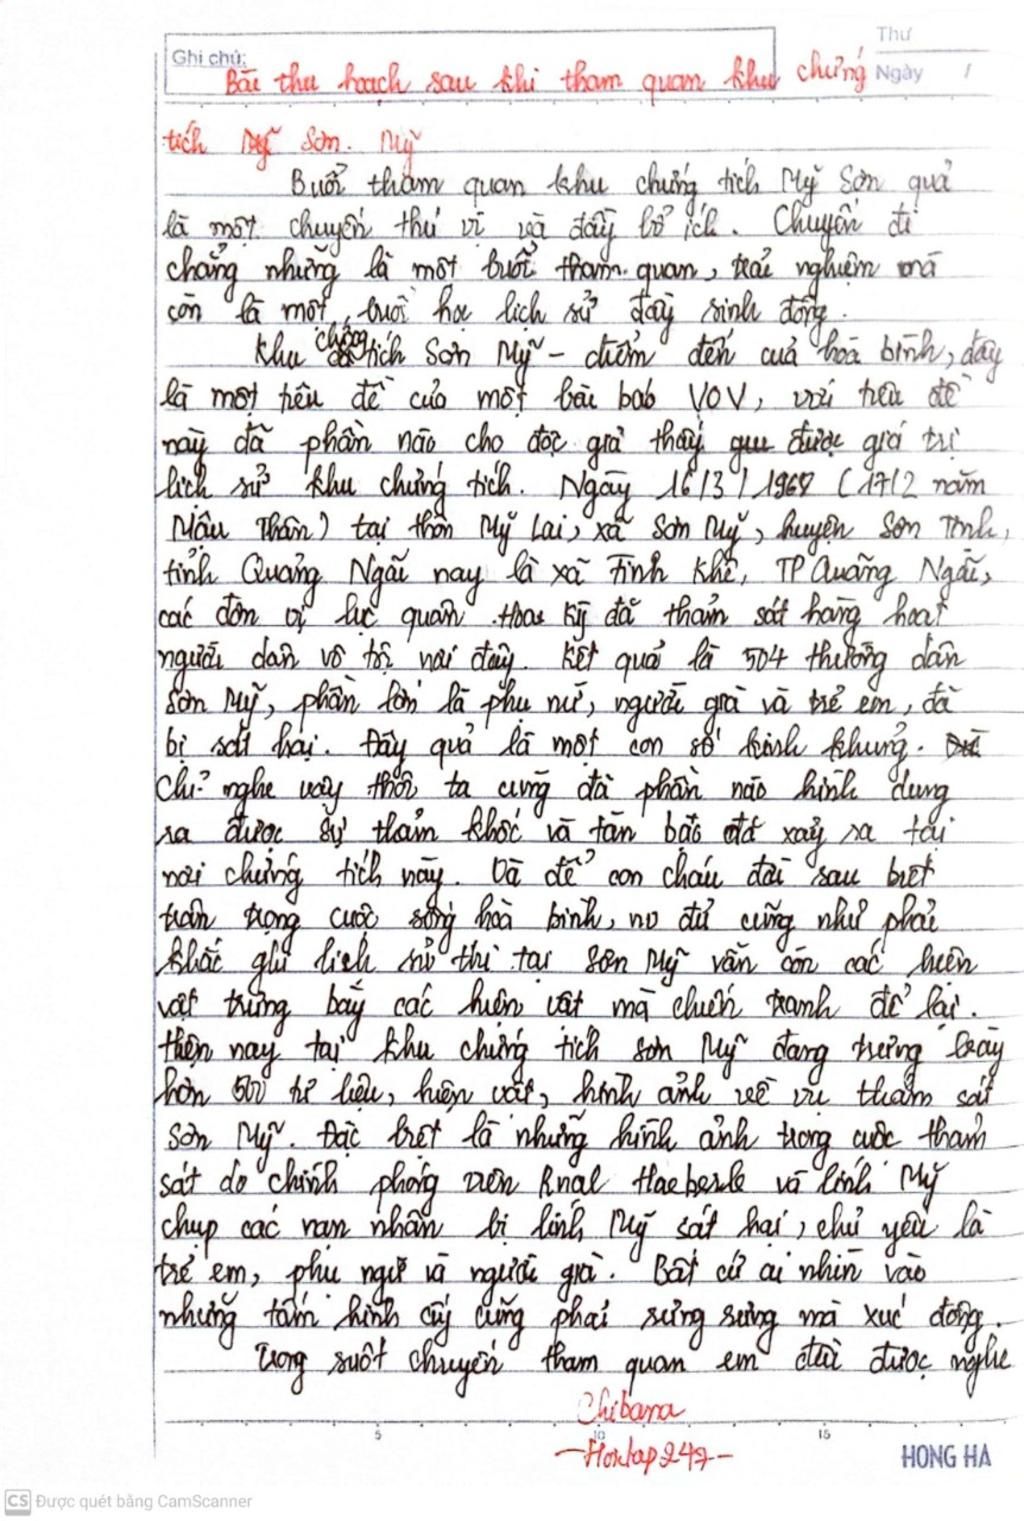 Thứ
Ghi chú:
Ngày /
Bài thu hoạch sau khi tham quan khu chứng
tích Sơn Mỹ
Buổi tham quan khu chứng tích Mỹ Sơn quả
là một chuyến thú vị và đầy bổ ích. Chuyến đi
chẳng những là một buổi tham quan, trải nghiệm mà
còn là một buổi học lịch sử đầy sinh động.
Khu chứng tích Sơn Mỹ - điểm đến của hoà bình, đây
là một tiêu đề của một bài báo VOV, với tiêu đề
này đã phần nào cho độc giả thấy được giá trị
lịch sử khu chứng tích. Ngày 16/3/1968 (17/2 năm
Mậu Thân) tại thôn Mỹ Lai, xã Sơn Mỹ, huyện Sơn Tịnh,
tỉnh Quảng Ngãi nay là xã Tịnh Khê, TP Quãng Ngãi,
các đơn vị lục quân Hoa Kỳ đã thảm sát hàng loạt
người dân vô tội nơi đây. Kết quả là 504 thường dân
Sơn Mỹ, phần lớn là phụ nữ, người già và trẻ em, đã
bị sát hại. Đây quả là một con số kinh khủng.
Chỉ nghe vậy thôi ta cũng đã phần nào hình dung
ra được sự thảm khốc và tàn bạo đã xảy ra tại
nơi chứng tích này. Và để con cháu đời sau biết
trân trọng cuộc sống hoà bình, no đủ cũng như phải
khắc ghi lịch sử thì tại Sơn Mỹ vẫn còn các hiện
vật trưng bày các hiện vật mà chiến tranh để lại.
Hiện nay tại khu chứng tích Sơn Mỹ đang trưng bày
hơn 500 tư liệu, hiện vật, hình ảnh về vụ thảm sát
Sơn Mỹ. Đặc biệt là những hình ảnh trong cuộc thảm
sát do chính phóng viên Rnal Haeberle và lính Mỹ
chụp các nạn nhân bị lính Mỹ sát hại, chủ yếu là
trẻ em, phụ ngữ và người già. Bất cứ ai nhìn vào
những tấm hình ấy cũng phải sửng sưng mà xúc động.
Trong suốt chuyến tham quan em đã được nghe
Chibana
5 10 15
HONG HA
CS Được quét bằng CamScanner